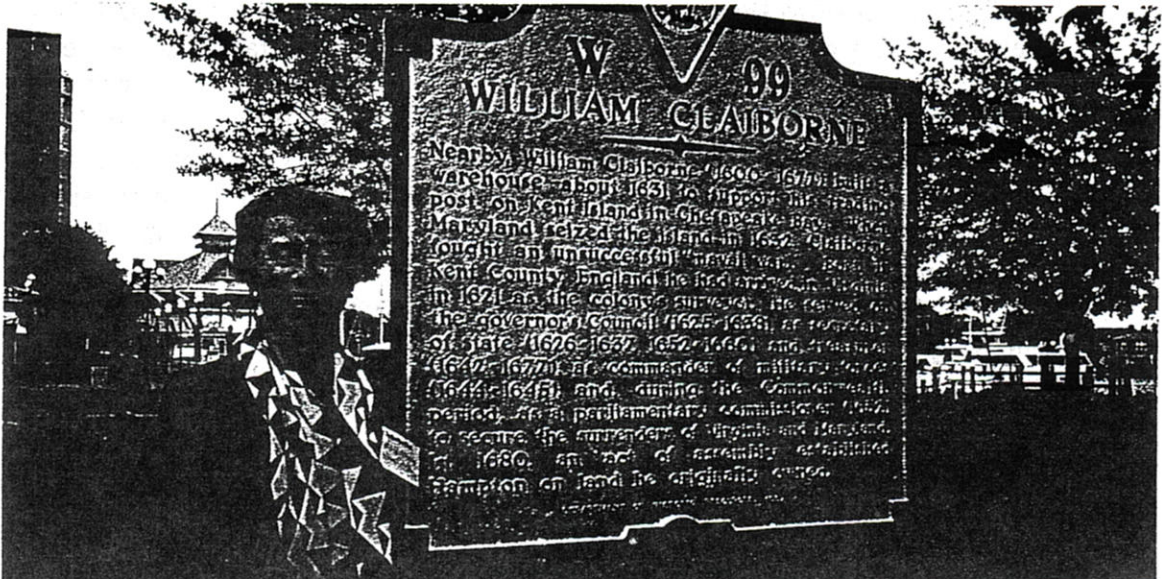 W 99
WILLIAM CLAIBORNE
Nearby, William Claiborne (1600-1677) built a
warehouse about 1631 to support his trading
post on Kent Island in Chesapeake Bay. When
Maryland seized the island in 1632, Claiborne
fought an unsuccessful "naval war"
Kent County, England, he had arrived in
in 1621 as the colony's surveyor. He served on
the governor's Council (1625-1638), as secretary
of state (1626-1637, 1652-1660), and treasurer
(1642-1677), as commander of military forces
(1644-1645), and, during the Commonwealth
period, as a parliamentary commissioner
to secure the surrenders of Virginia and Maryland.
In 1680, an act of assembly established
Hampton on land he originally owned.